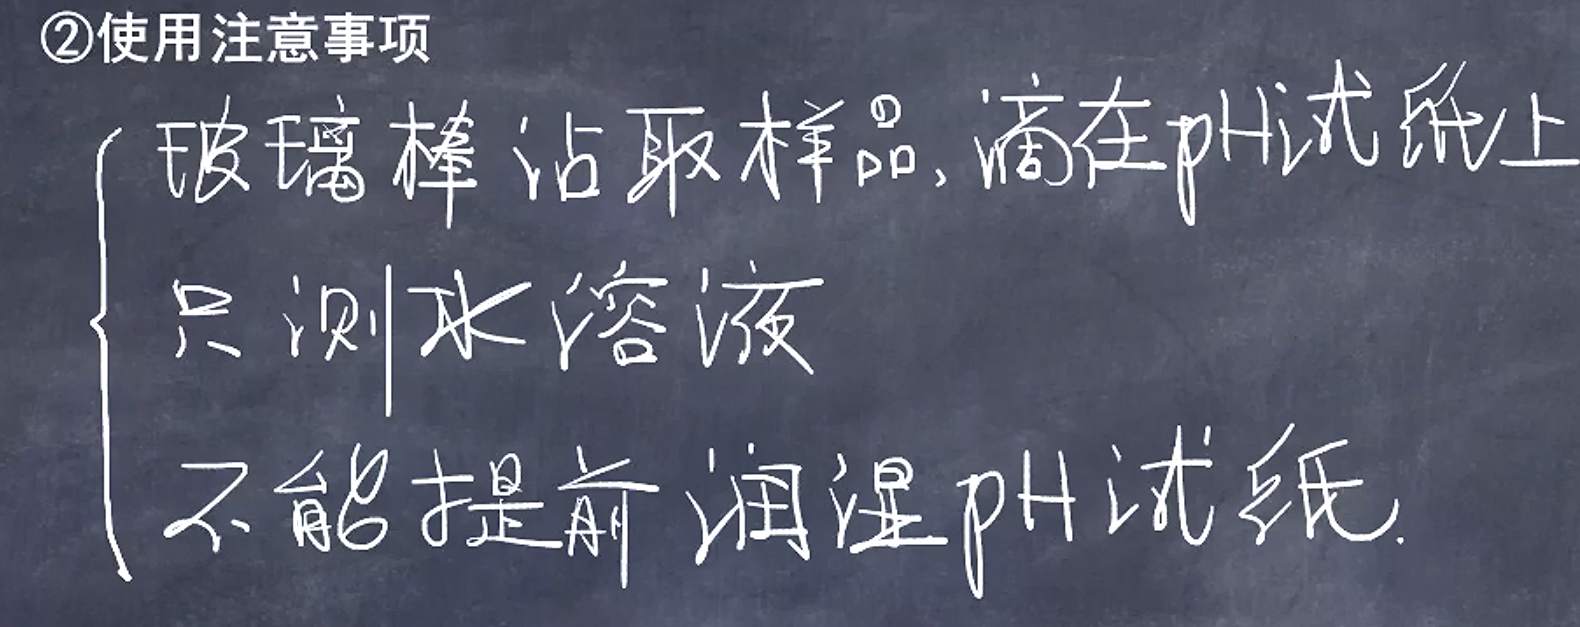 ②使用注意事项
玻璃棒沾取样品,滴在pH试纸上
只测水溶液
不能提前润湿pH试纸.